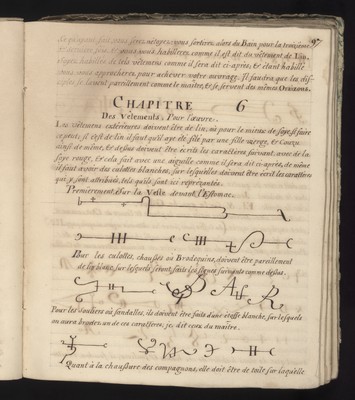 97
et quand vous serez netoyez, vous sortirez alors du Bain pour la troizieme
et derniere fois, et vous vous habillerez comme il est dit du vêtement de Lin,
soyez habillez de tels vêtemens comme il sera dit ci-après; et étant habillé
vous vous approcherez pour achever votre ouvrage. Il faudra que les dis-
ciples se lavent pareillement comme le maître, et se servent des mêmes Oraisons.
CHAPITRE 6
Des Vêtements, Pour l'œuvre.
Les vêtemens extérieures doivent être de lin, ou pour le mieux de soye, s'il faire
ce peut; s'il est de lin il faut qu'il aye été filé par une fille vierge, et Cousu
ainsi de même, et dessus doivent être écrits les caractères suivant: avec de la
soye rouge, et cela fait avec une aiguille comme il sera dit ci-après, de même
il faut avoir des culottes blanches, sur lesquelles doivent être écrit les caractères
qui y sont attribués, tels qu'ils sont ici representés.
Premièrement: Sur la Veste devant l'Estomac.
Pour les culottes, chausses où Brodequins, doivent être pareillement
de lin blanc, sur lesquels seront faits les signes suivants comme dessus.
Pour les souliers où sandalles, ils doivent être faits d'une étoffe blanche, sur lesquels
on aura brodez un de ces caractères; je dit ceux du maître.
Quant à la chaussure des compagnons, elle doit être de toile sur laquelle